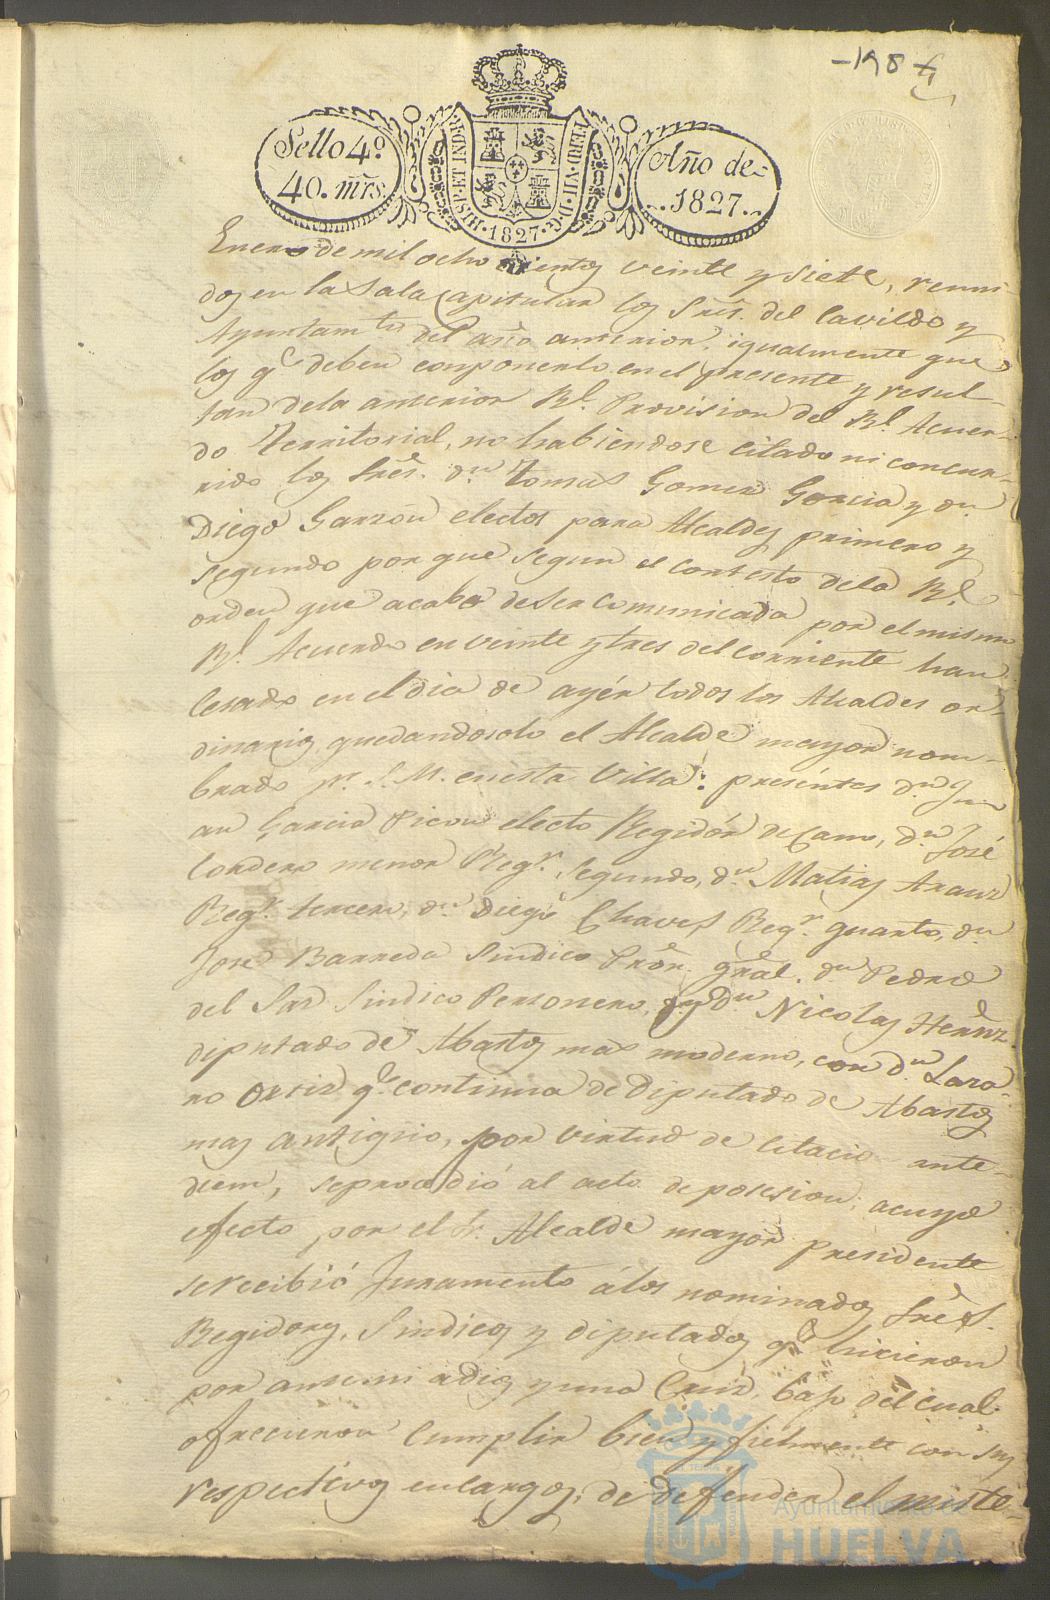 -198 f
Sello 4º
40. mrs.
HISP. ET IND. R.
FERD. VII. D. G.
1827
Año de
1827.
Enero de mil ocho cientos veinte y siete, reuni-
dos en la Sala Capitular los Sres. del Cavildo y
Ayuntamto. del año anterior: igualmente que
los qe. deben componerlo en el presente y resul-
tan dela anterior Rl. Provision del Rl. Acuer-
do Territorial, no habiendose citado ni concur-
rido los Sres. dn. Tomas Gomez Garcia y dn
Diego Garzon electos para Alcaldes primero y
segundo por que segun el contesto dela Rl.
orden que acaba deser comunicada por el mismo
Rl. Acuerdo en veinte y tres del corriente han
cesado en el dia de ayér todos los Alcaldes or-
dinarios, quedando solo el Alcalde mayor nom-
brado pr. S. M. en esta Villa: preséntes dn. Ju-
an Garcia Picon electo Regidór decano, dn. José
Cordero menor Regr. Segundo, dn. Matias Arauz
Regr. tercero, dn. Diego Chaves Regr. quarto, dn
José Barreda Sindico Pror. gral. dn Pedro
del Saz Sindico Personero, y dn Nicolas Hernz.
diputado de Abastos mas moderno, con dn. Laza-
ro Ortiz qe. continua de Diputado de Abastos
mas antiguo, por virtud de citacion ante-
diem, se procedió al acto de posesion; acuyo
efecto por el Sr. Alcalde mayor presidente
se recibió Juramento álos nominados Sres.
Regidores, Sindicos y diputados qe. hicieron
por ante mi á Dios y una Cruz, bajo del cual
ofrecieron cumplir bien y fielmente con sus
respectivos encargos; de defender el miste-
Ayuntamiento de
HUELVA